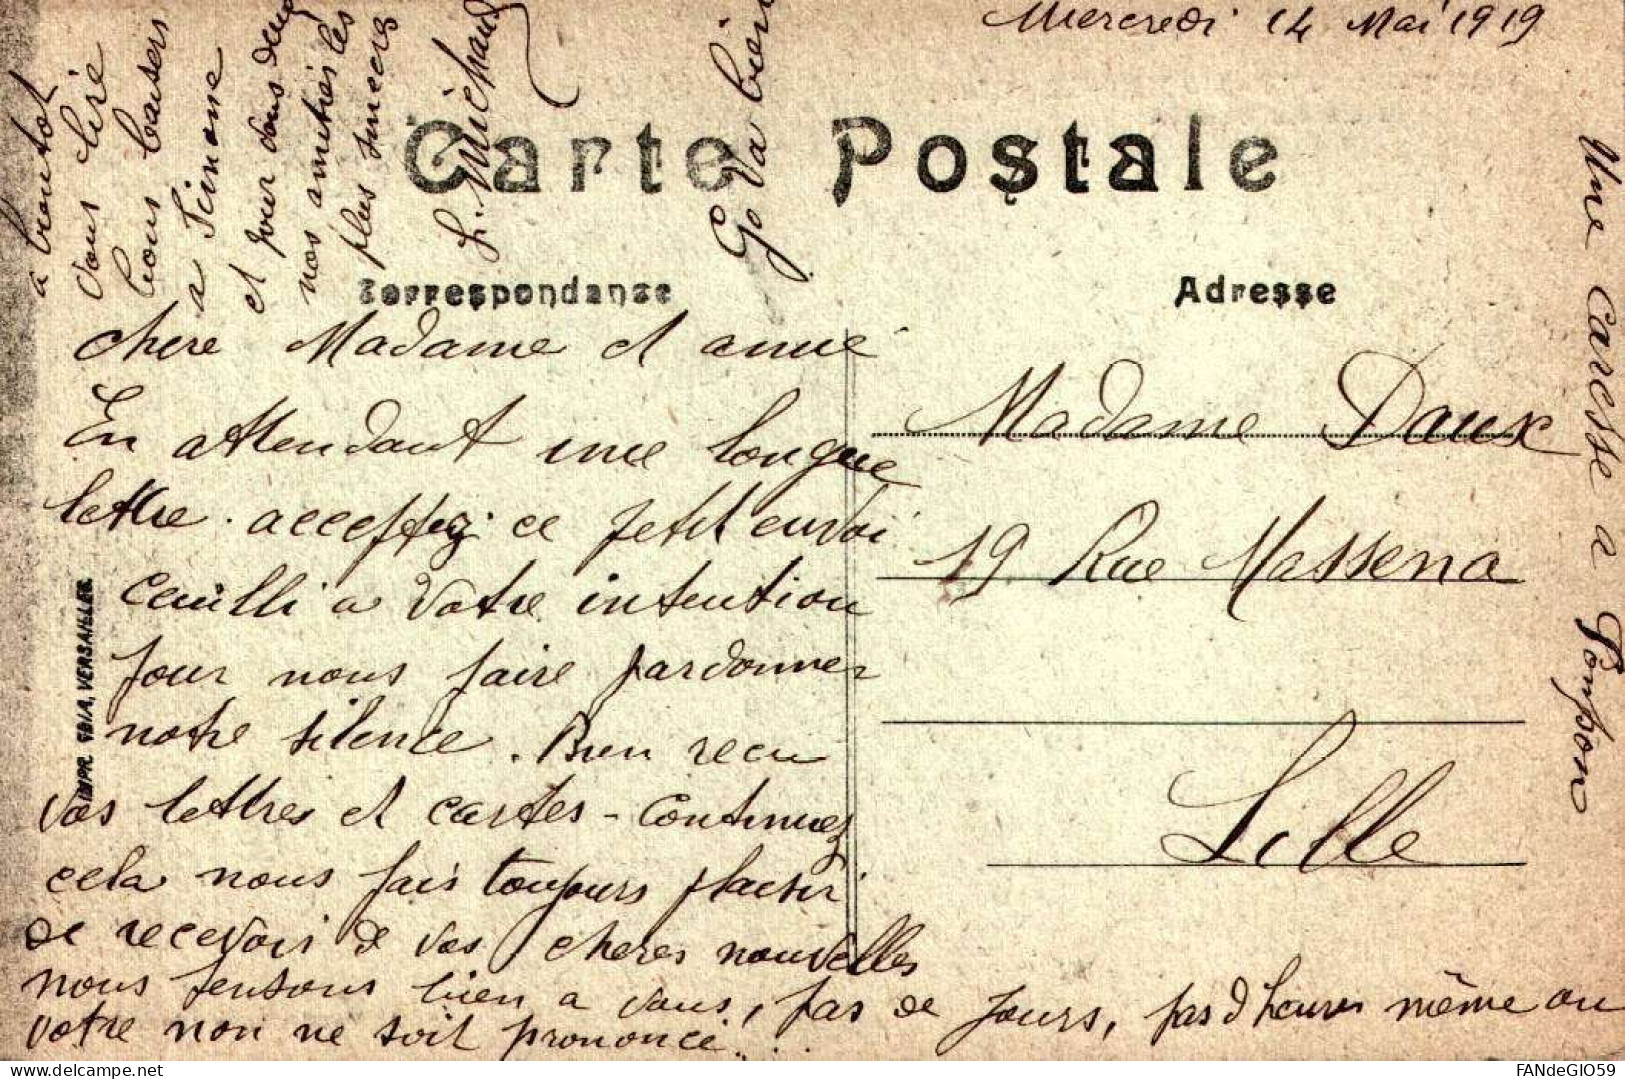 Mercredi 14 Mai 1919
Carte Postale
Correspondanse
Adresse
chere Madame et amie
En attendant une longue
lettre. acceptez ce petit envoi
ceuilli a votre intention
pour nous faire pardonner
notre silence. Bien recu
vos lettres et cartes - Continuez
cela nous fais toujours plaisir
de recevoir de vos cheres nouvelles
nous pensons bien a vous, pas de jours, pas d'heures même ou
votre non ne soit prononcé...
à bientot
vous lire
bons baisers
a Simone
et pour vous deux
nos amitiés les
plus sinceres
L. Michaud
Go va bien
Madame Daux
19 Rue Massena
Lille
Une caresse a Pompon
IMPR. VERSAILLES
FANdeGIO59